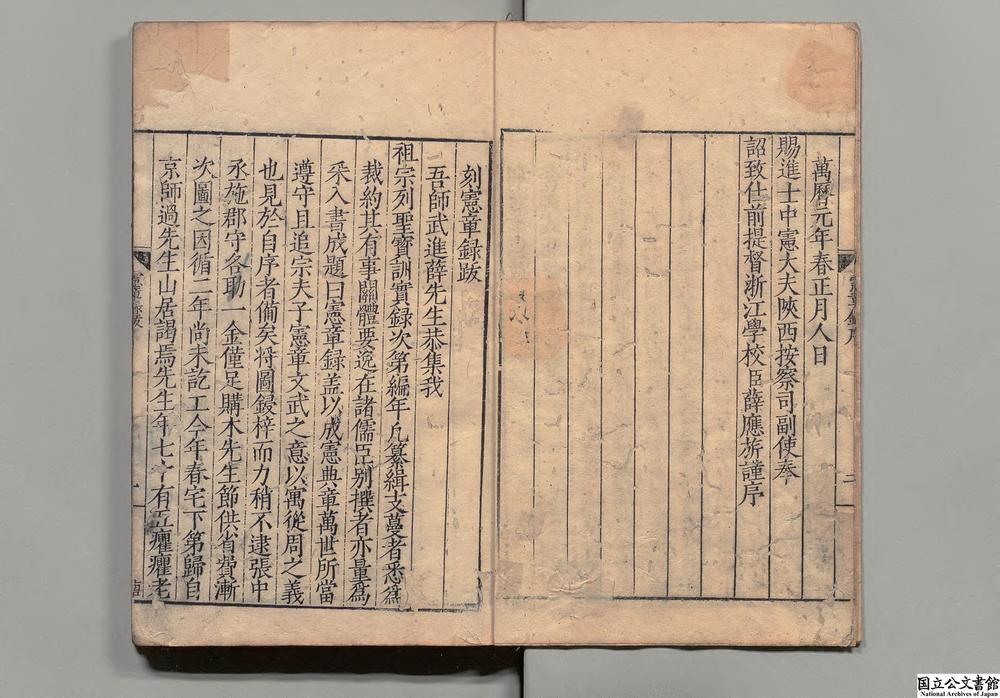 萬曆元年春正月人日
賜進士中憲大夫陝西按察司副使奉
詔致仕前提督浙江學校臣薛應旂謹序
刻憲章錄跋
吾師武進薛先生恭集我
祖宗列聖寶訓實録次第編年凡纂緝支蔓者悉爲
裁約其有事關體要逸在諸儒臣别撰者亦量爲
采入書成題曰憲章録盖以成憲典章萬世所當
遵守且追宗夫子憲章文武之意以寓從周之義
也見於自序者備矣將圖鋟梓而力稍不逮張中
丞施郡守各助一金僅足購木先生節供省費漸
次圖之因循二年尚未訖工今年春宅下第歸自
京師過先生山居謁焉先生年七十有五癯癯老
國立公文書館
National Archives of Japan